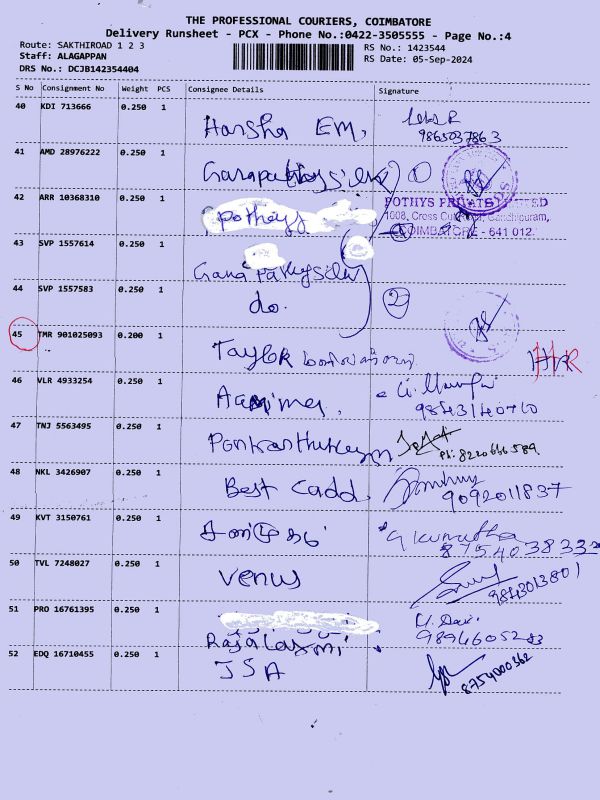 THE PROFESSIONAL COURIERS, COIMBATORE
Delivery Runsheet - PCX - Phone No.:0422-3505555 - Page No.:4
Route: SAKTHIROAD 1 2 3
RS No.: 1423544
Staff: ALAGAPPAN
RS Date: 05-Sep-2024
DRS No.: DCJB142354404
S No Consignment No Weight PCS Consignee Details Signature
40 KDI 713666 0.250 1
Harsha EM,
9865037863
41 AMD 28976222 0.250 1
1
42 ARR 10368310 0.250 1
Pothys
POTHYS PRIVATE LIMITED
1008, Cross Cut Road, Gandhipuram,
COIMBATORE - 641 012.
43 SVP 1557614 0.250 1
Ganapathy silk
44 SVP 1557583 0.250 1
do.
2
45 TMR 901025093 0.200 1
Taylor
HR
46 VLR 4933254 0.250 1
9843140710
47 TNJ 5563495 0.250 1
Ph: 8220666589
48 NKL 3426907 0.250 1
Best Cadd
9092011837
49 KVT 3150761 0.250 1
50 TVL 7248027 0.250 1
Venus
9843013801
51 PRO 16761395 0.250 1
Rajalaxmi
9894605283
52 EDQ 16710455 0.250 1
JSA
8754000362